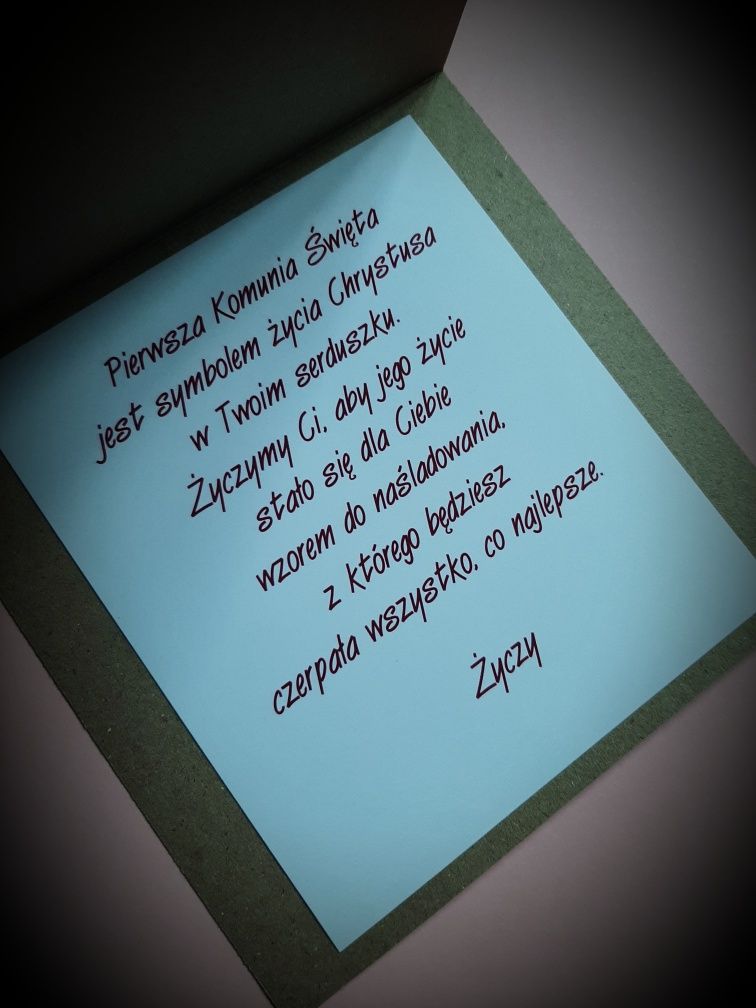 Pierwsza Komunia Święta
jest symbolem życia Chrystusa
w Twoim serduszku.
Życzymy Ci, aby jego życie
stało się dla Ciebie
wzorem do naśladowania,
z którego będziesz
czerpała wszystko, co najlepsze.
Życzy